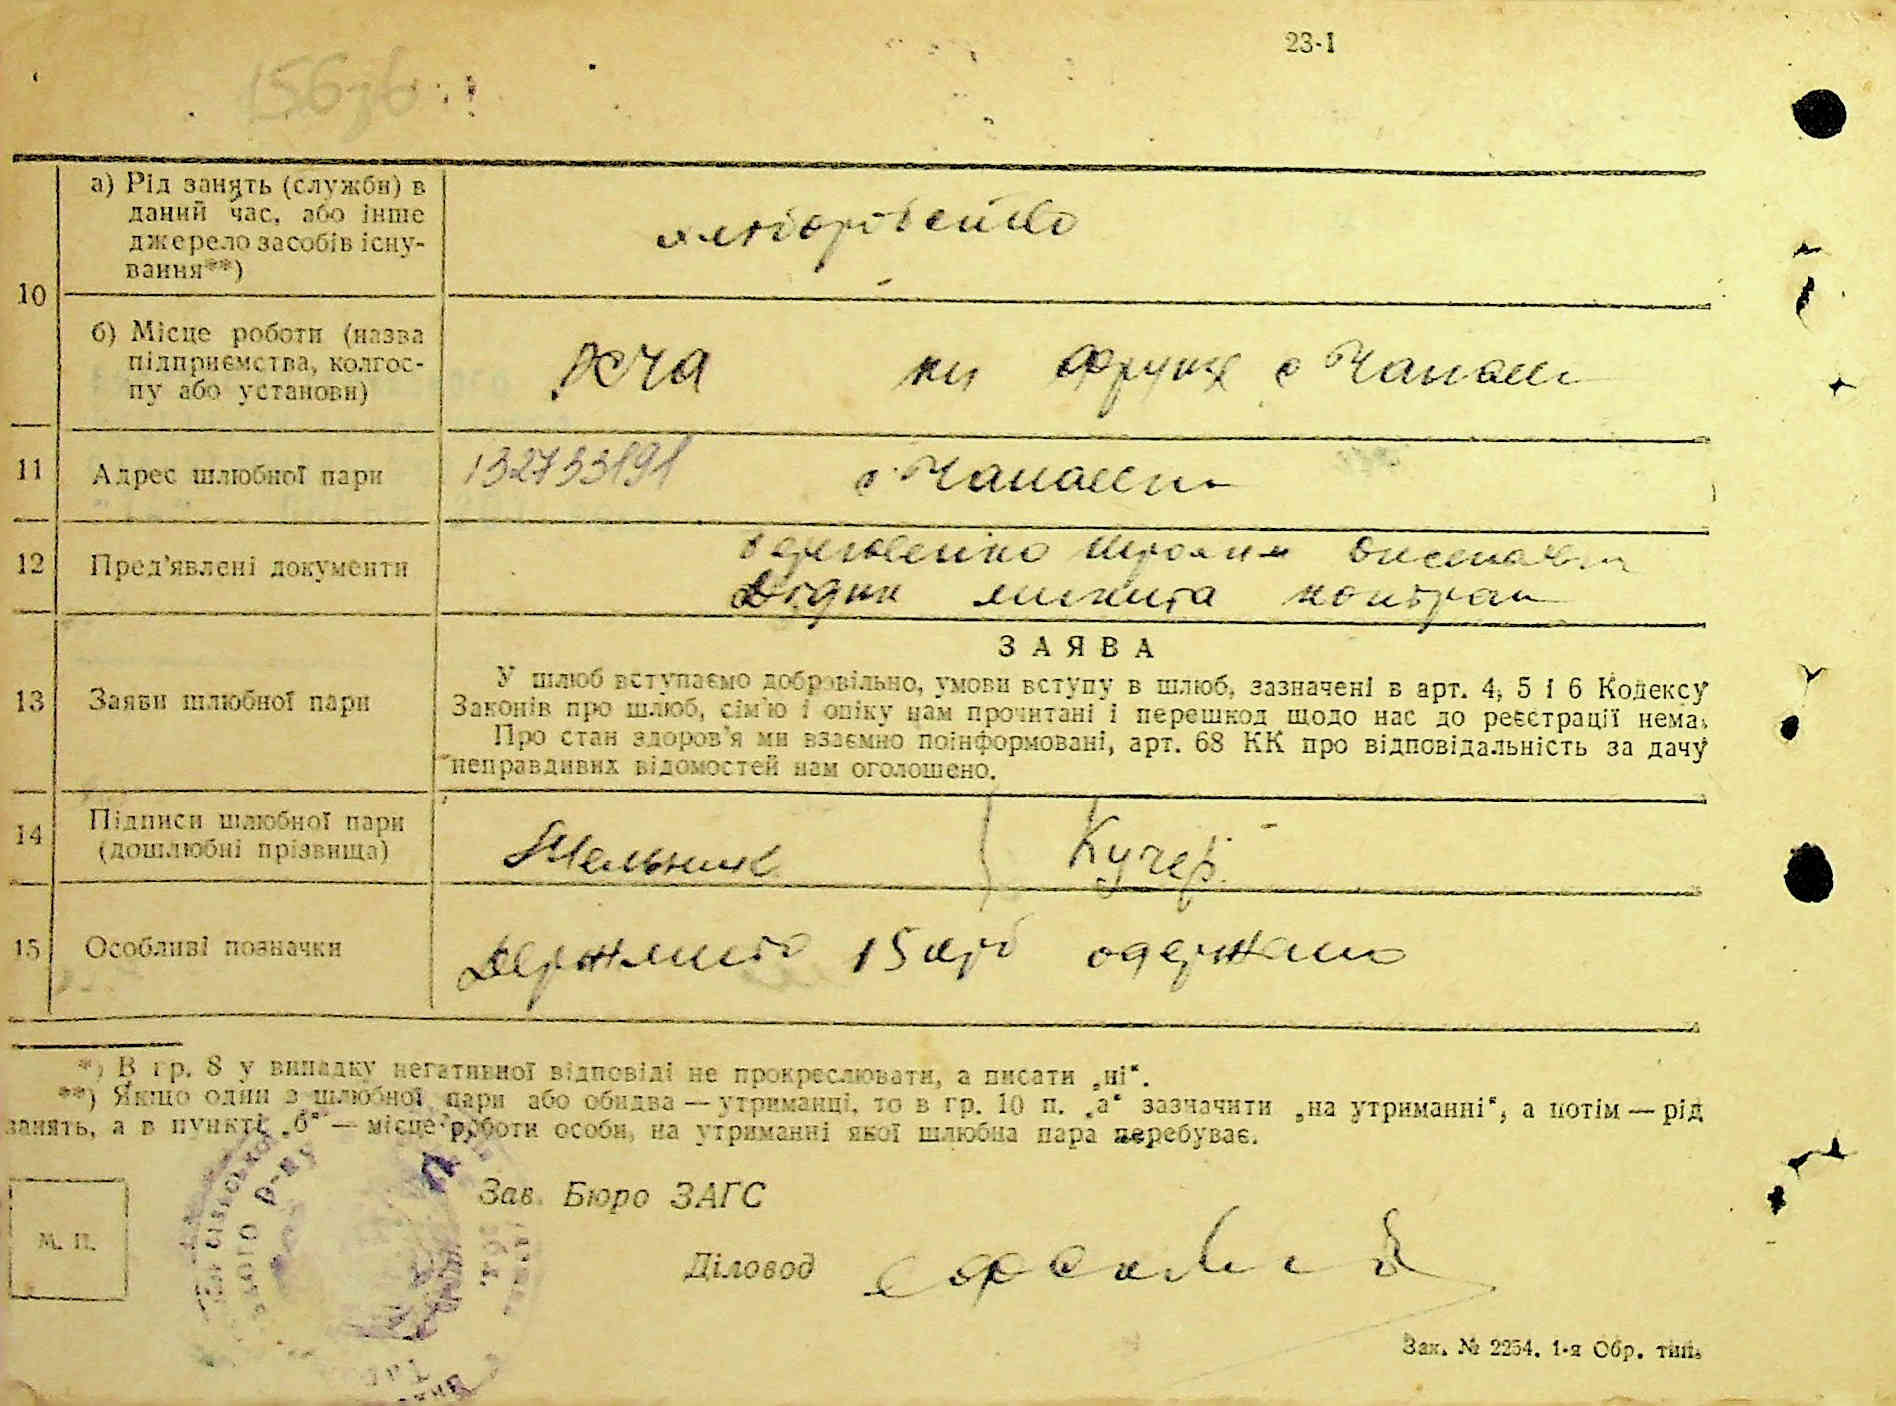 23-I
10
а) Рід занять (служби) в
даний час, або інше
джерело засобів існу-
вання**)
б) Місце роботи (назва
підприємства, колгос-
пу або установи)
11
Адрес шлюбної пари
132733191
12
Пред'явлені документи
13
Заяви шлюбної пари
ЗАЯВА
У шлюб вступаємо добровільно, умови вступу в шлюб, зазначені в арт. 4, 5 і 6 Кодексу
Законів про шлюб, сім'ю і опіку нам прочитані і перешкод щодо нас до реєстрації нема.
Про стан здоров'я ми взаємно поінформовані, арт. 68 КК про відповідальність за дачу
неправдивих відомостей нам оголошено.
14
Підписи шлюбної пари
(дошлюбні прізвища)
Мельник Кучер.
15
Особливі позначки
Держмито 15 крб одержано
*) В гр. 8 у випадку негативної відповіді не прокреслювати, а писати „ні“.
**) Якщо один з шлюбної пари або обидва — утриманці, то в гр. 10 п. „а“ зазчачити „на утриманні“, а потім — рід
занять, а в пункті „б“ — місце роботи особи, на утриманні якої шлюбна пара перебуває.
М. П.
Зав. Бюро ЗАГС
Діловод
Зак. № 2254. 1-я Обр. тип.